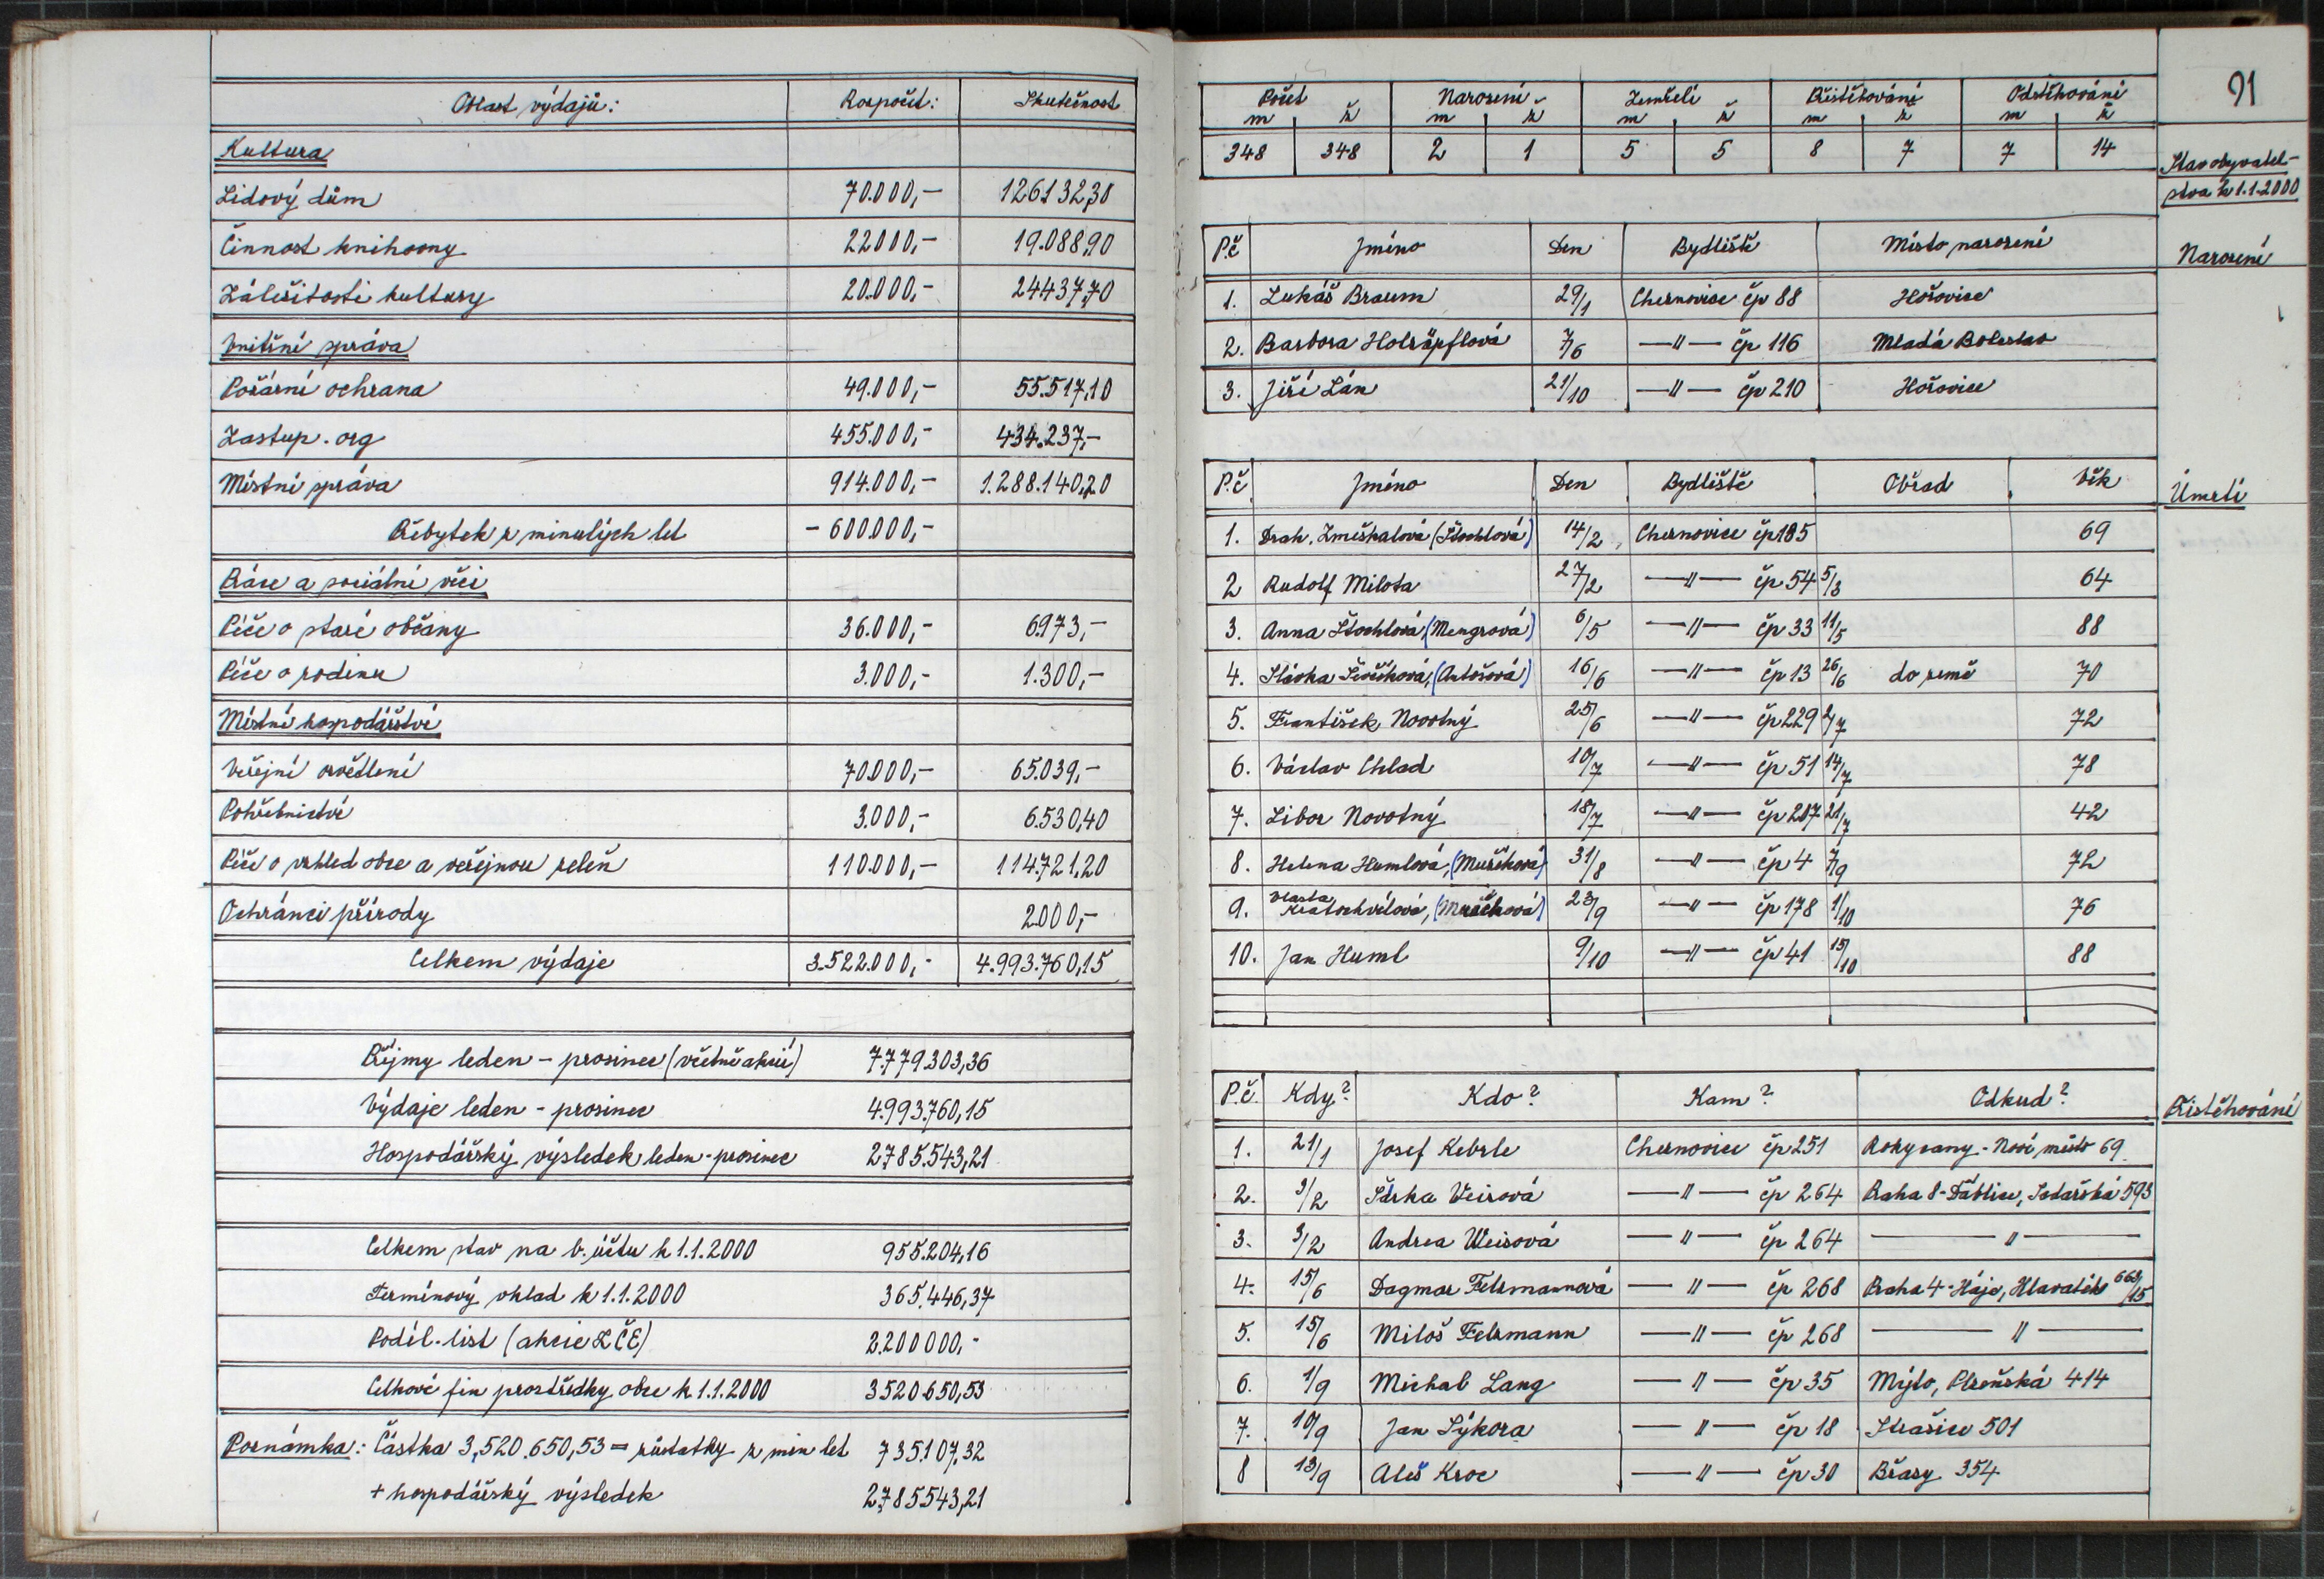 Oblast výdajů: Rozpočet: Skutečnost
Kultura
Lidový dům 70.000,- 126.132,30
Činnost knihovny 22000,- 19.088,90
Záležitosti kultury 20.000,- 24.437,70
Vnitřní správa
Požární ochrana 49.000,- 55.517,10
Zastup. org 455.000,- 434.237,-
Místní správa 914.000,- 1.288.140,20
Přebytek z minulých let - 600.000,-
Práce a sociální věci
Péče o staré občany 36.000,- 6.973,-
Péče o rodinu 3.000,- 1.300,-
Místní hospodářství
Veřejné osvětlení 70.000,- 65.039,-
Pohřebnictví 3.000,- 6.530,40
Péče o vzhled obce a veřejnou zeleň 110.000,- 114.721,20
Ochránci přírody 2.000,-
Celkem výdaje 3.522.000,- 4.993.760,15
Příjmy leden - prosinec (včetně akcií) 7.779.303,36
Výdaje leden - prosinec 4.993.760,15
Hospodářský výsledek leden-prosinec 2.785.543,21
Celkem stav na b. účtu k 1.1.2000 955.204,16
Termínový vklad k 1.1.2000 365.446,37
Podíl. list (akcie ZČE) 2.200.000,-
Celkové fin prostředky obce k 1.1.2000 3520.650,53
Poznámka: Částka 3,520.650,53 = zůstatky z min let 735.107,32
+ hospodářský výsledek 2.785.543,21
91
Počet Narození Zemřelí Přistěhování Odstěhování
m ž m ž m ž m ž m ž
348 348 2 1 5 5 8 7 7 14
Stav obyvatel-
stva k 1.1.2000
Narození
P.č Jméno Den Bydliště Místo narození
1. Lukáš Braum 29/1 Cheznovice čp 88 Hořovice
2. Barbora Holzäpflová 7/6 —"— čp 116 Mladá Boleslav
3. Jiří Lán 21/10 —"— čp 210 Hořovice
Úmrtí
P.č Jméno Den Bydliště Obřad Věk
1. Drah. Zmeškalová (Štochlová) 14/2 Cheznovice čp 185 69
2 Rudolf Milota 27/2 —"— čp 54 5/3 64
3. Anna Štochlová, (Mengrová) 6/5 —"— čp 33 11/5 88
4. Slávka Ševčíková, (Antošová) 16/6 —"— čp 13 26/6 do země 70
5. František Novotný 25/6 —"— čp 229 2/7 72
6. Václav Chlad 10/7 —"— čp 51 14/7 78
7. Libor Novotný 18/7 —"— čp 217 21/7 42
8. Helena Humlová, (Mužíková) 31/8 —"— čp 4 7/9 72
9. Vlasta Kratochvílová, (Mužíková) 23/9 —"— čp 178 1/10 76
10. Jan Huml 9/10 —"— čp 41 15/10 88
Přistěhování
P.č. Kdy? Kdo? Kam? Odkud?
1. 21/1 Josef Kebrle Cheznovice čp 251 Rokycany - Nové město 69
2. 3/2 Šárka Weisová —"— čp 264 Praha 8 - Ďáblice, Sadařská 593
3. 3/2 Andrea Weisová —"— čp 264 —"—
4. 15/6 Dagmar Felzmannová —"— čp 268 Praha 4 - Háje, 663/15
5. 15/6 Miloš Felzmann —"— čp 268 —"—
6. 1/9 Michal Lang —"— čp 35 Mýto, Plzeňská 414
7. 10/9 Jan Sýkora —"— čp 18 Strašice 501
8 13/9 Aleš Kroc —"— čp 30 Břasy 354